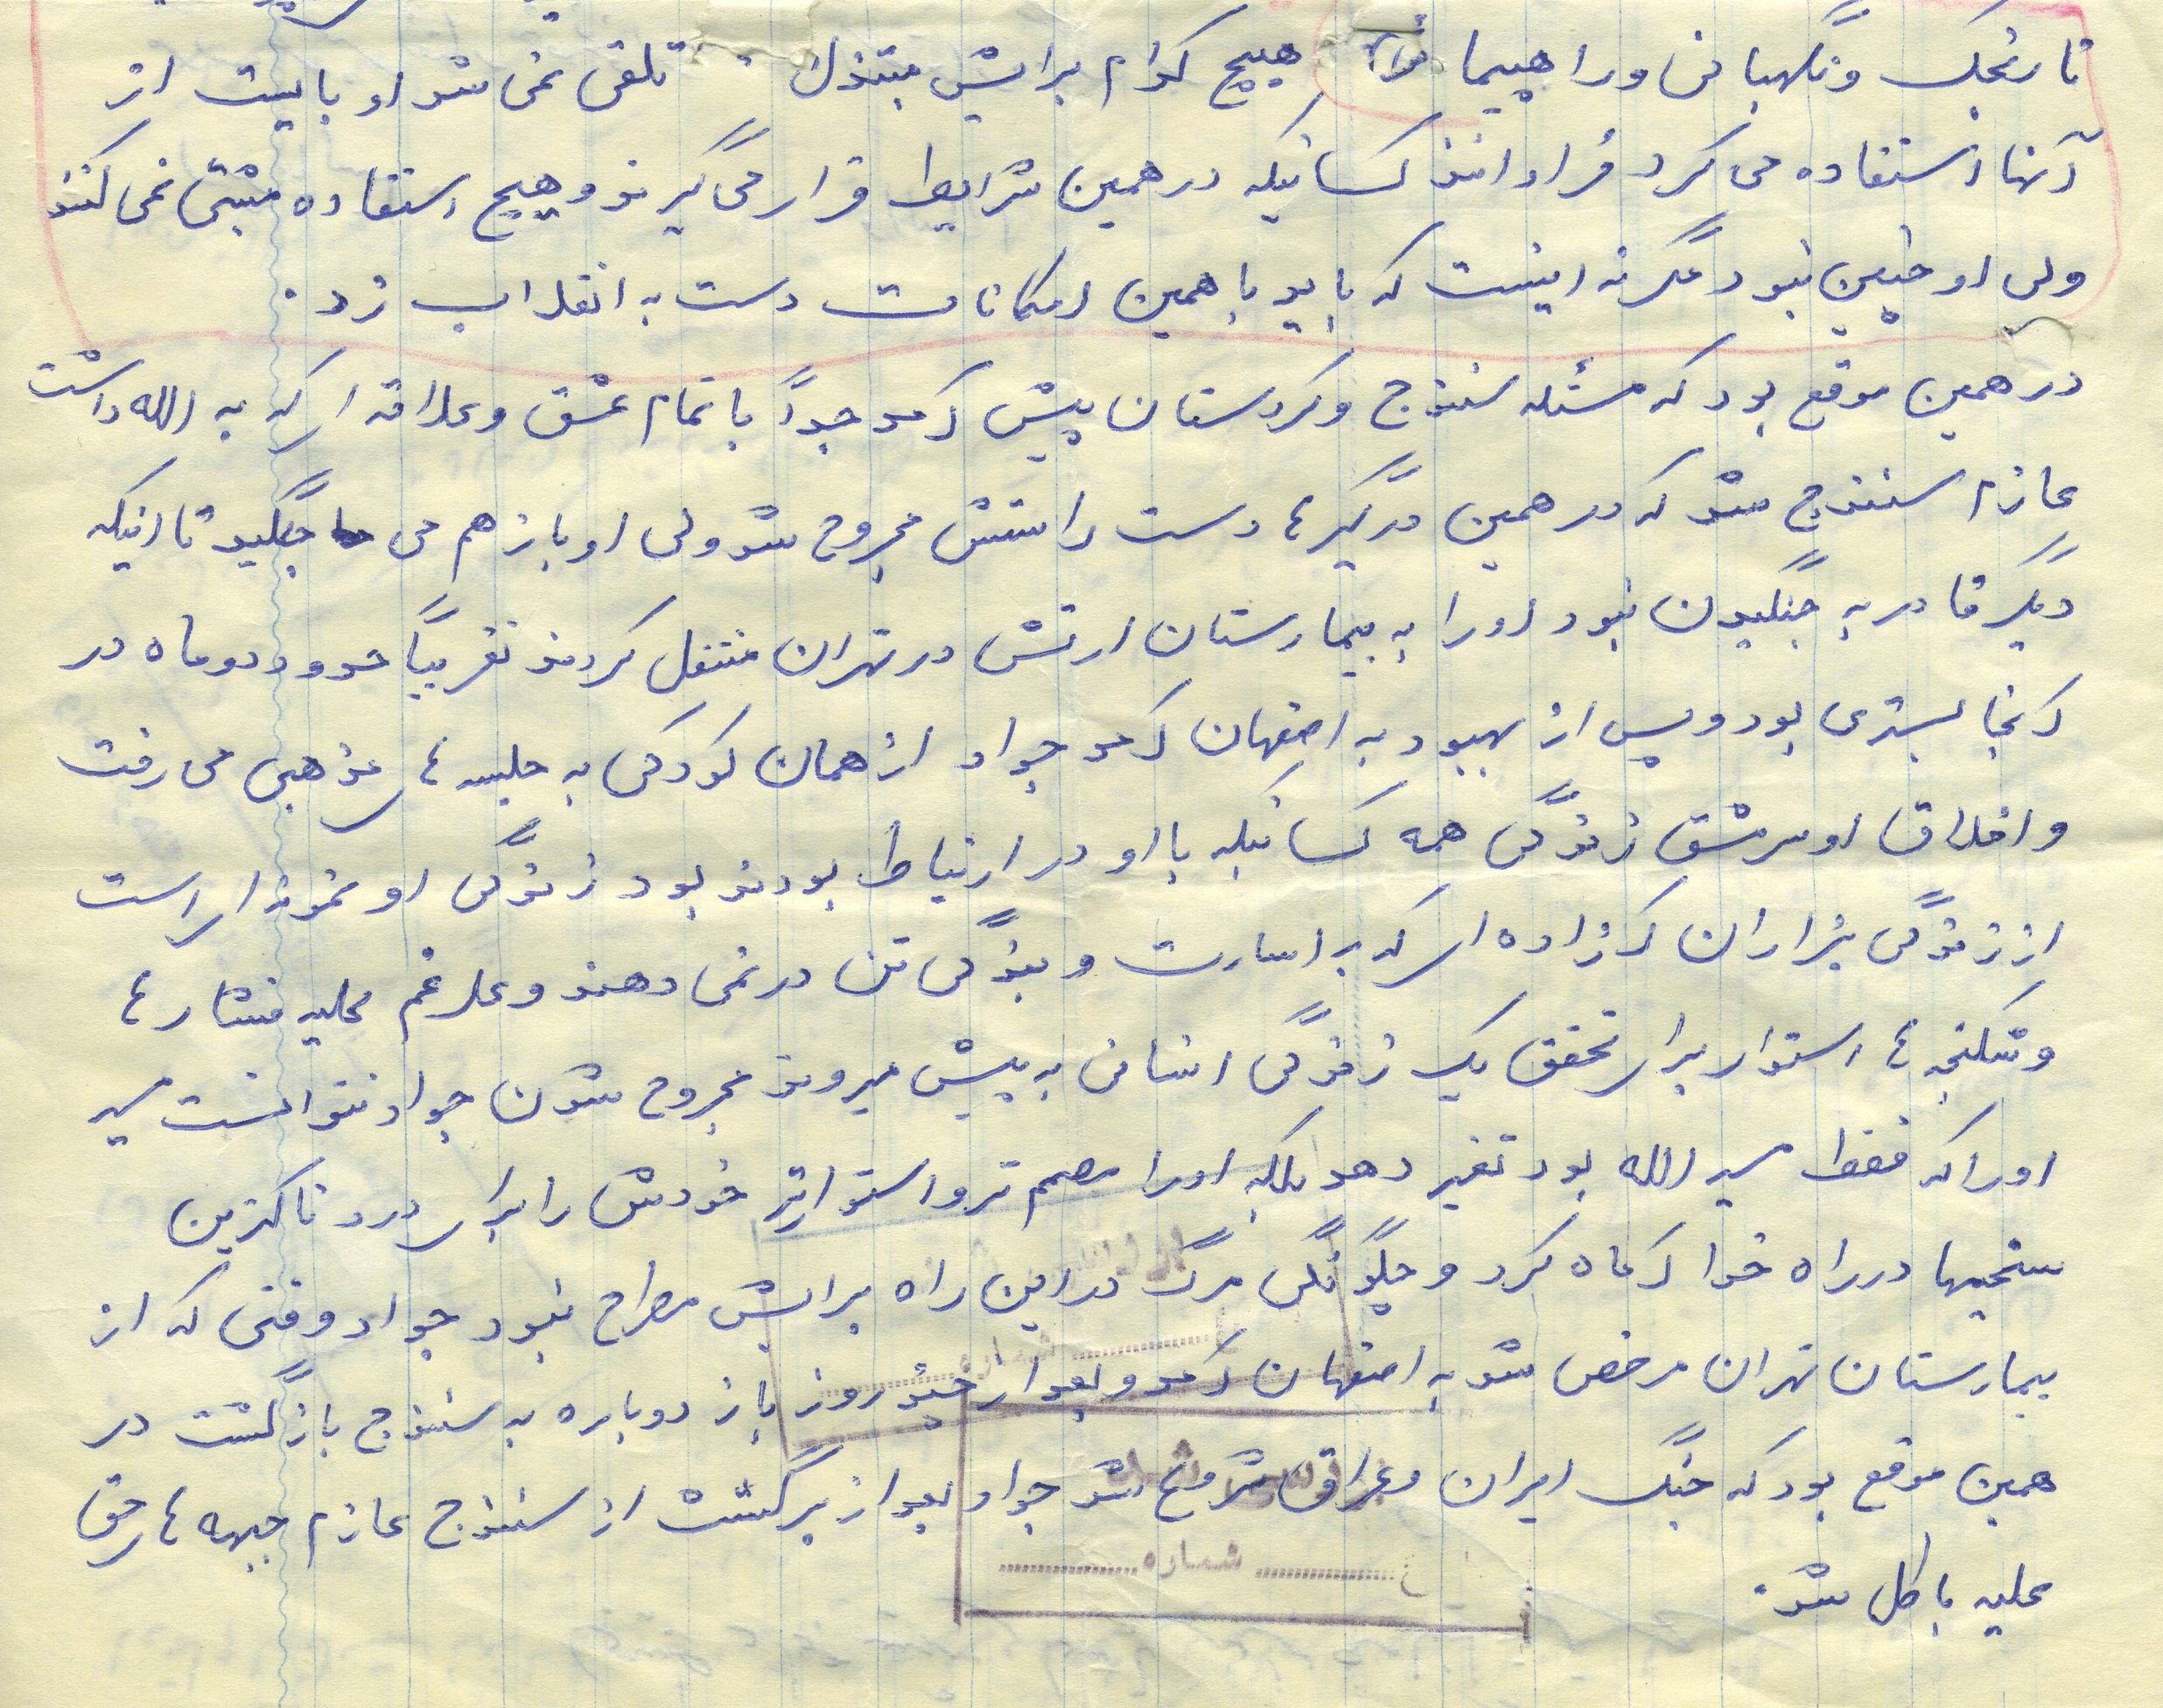 نارنجک و نگهبانی و راهپیمائی هیچ کدام برایش مبتذل تلقی نمی شد او بایست از
آنها استفاده می کرد فراوانند کسانیکه در همین شرایط قرار می گیرند و هیچ استفاده مثبتی نمی کنند
ولی او چنین نبود مگر نه اینست که باید با همین امکانات دست به انقلاب زد.
در همین موقع بود که مسئله سنندج و کردستان پیش آمد جواد با تمام عشق و علاقه ای که به الله داشت
عازم سنندج شد که در همین درگیریها دست راستش مجروح شد ولی او باز هم می جنگید تا اینکه
دیگر قادر به جنگیدن نبود او را به بیمارستان ارتش در تهران منتقل کردند تقریباً حدود دو ماه در
آنجا بستری بود و پس از بهبود به اصفهان آمد جواد از همان کودکی به جلسه های مذهبی می رفت
و اخلاق او سرمشق زندگی همه کسانیکه با او در ارتباط بودند بود زندگی او نمونه ای است
از زندگی هزاران آزاده ای که به اسارت و بندگی تن در نمی دهند و علرغم کلیه فشارها
و شکنجه ها استوار برای تحقق یک زندگی انسانی به پیش میروند مجروح شدن جواد نتوانست مسیر
او را که فقط مسیر الله بود تغیر دهد بلکه او را مصمم تر و استوارتر خودش را برای دردناکترین
سختیها در راه خدا آماه کرد و چگونگی مرگ در این راه برایش مطرح نبود جواد وقتی که از
بیمارستان تهران مرخص شد به اصفهان آمد و بعد از چند روز باز دوباره به سنندج بازگشت در
همین موقع بود که جنگ ایران و عراق شروع شد جواد بعد از برگشت از سنندج عازم جبهه های حق
علیه باطل شد.
شماره
شماره